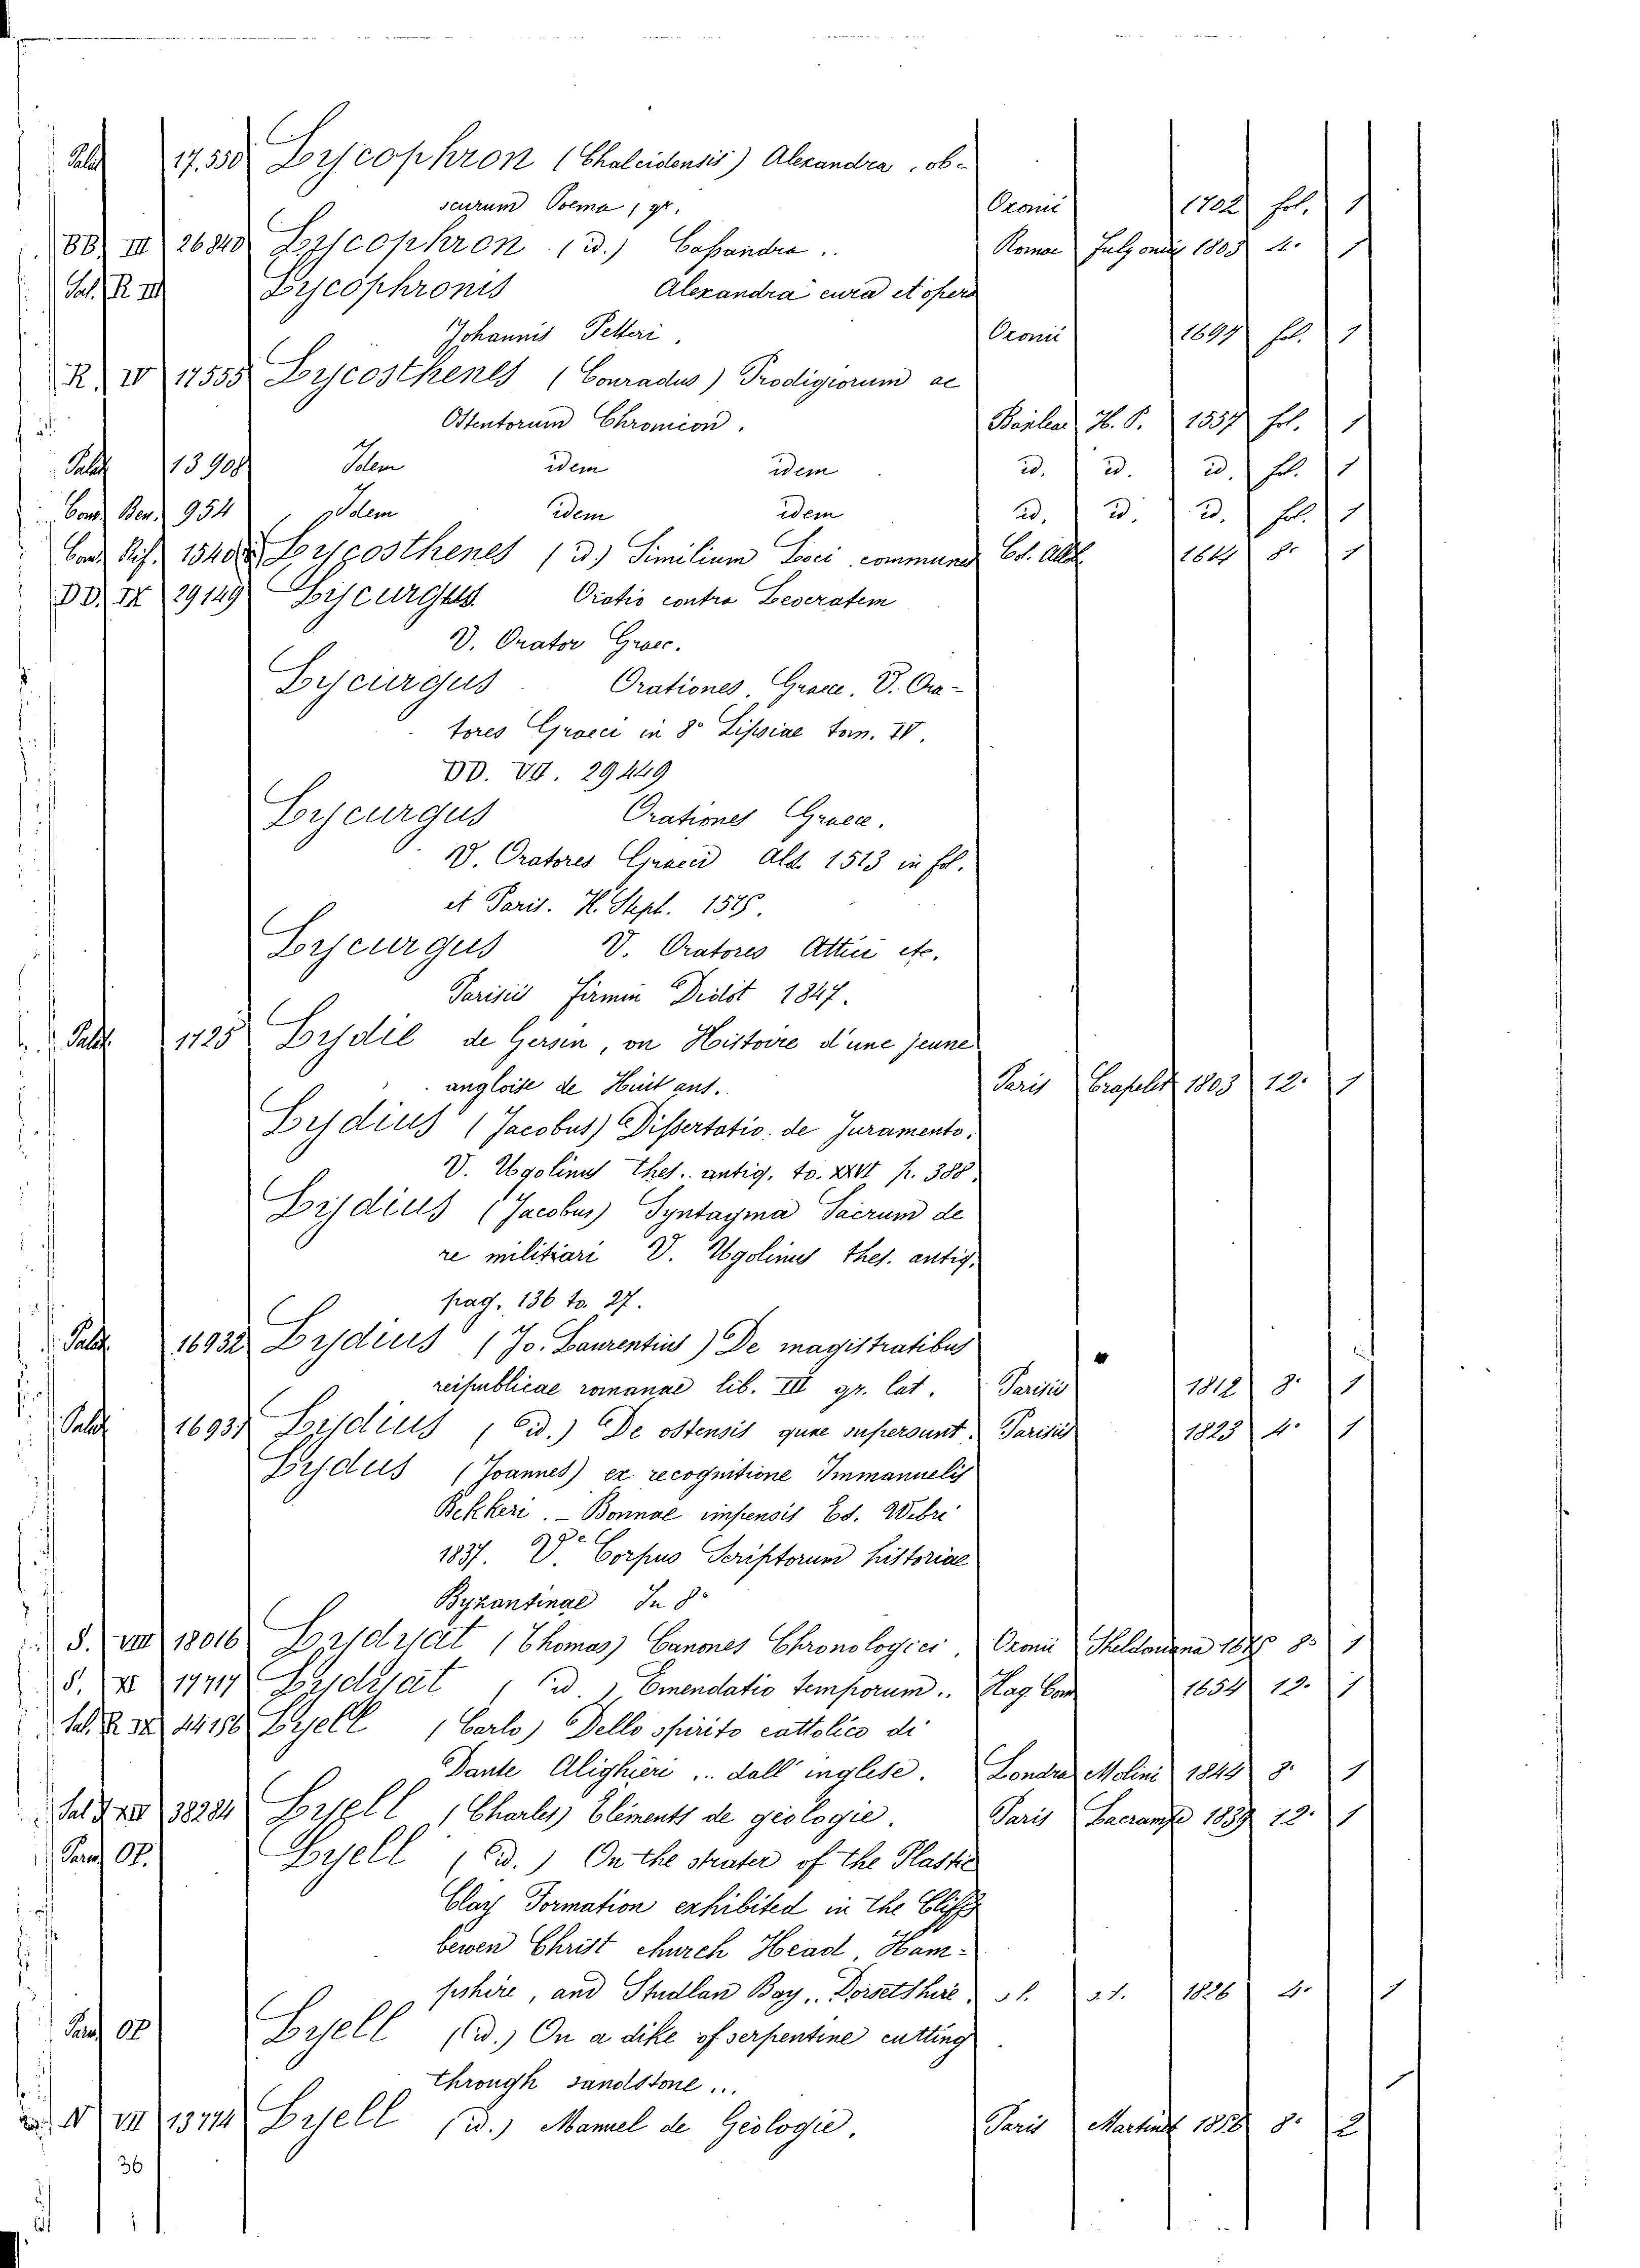 Palat 17,550 Lycophron (Chaleidensis) Alexandra, ob-
scurum Poema, gr. Oxonii 1702 fol. 1
BB. III 26840 Lycophron (id.) Cassandra.. Romae Fulgonius 1803 4. 1
Sal. R. III Lycophronis Alexandra cura et opera
Johannis Petteri. Oxonii 1697 fol. 1
R. IV 17555 Lycosthenes (Conradus) Prodigiorum ac
Ostentorum Chronicon. Basileae H. P. 1557 fol. 1
Palat 13908 Idem idem idem id. id. id. fol. 1
Cons. Ben. 954 Idem idem idem id. id. id. fol. 1
15408 Lycosthenes (id.) Similium Loci communes 1614 8. 1
DD. IX 29149 Lycurgus Oratio contra Leocratem
V. Orator Graec.
Lycurgus Orationes, Graece. V. Ora-
tores Graeci in 8º Lipsiae tom. IV.
DD. VII. 29449
Lycurgus Orationes Graece.
V. Oratores Graeci Ald. 1513 in fol.
et Paris. H. Steph. 1575.
Lycurgus V. Oratores Attici etc.
Parisiis Firmin Didot 1847.
Palat. 1725 Lydie de Gersin, ou Histoire d'une jeune
angloise de Huit ans. Paris Crapelet 1803 12. 1
Lydius (Jacobus) Dissertatio de Juramento.
V. Ugolinus Thes. antiq. to. XXVI p. 388.
Lydius (Jacobus) Syntagma Sacrum de
re militiari V. Ugolinus thes. antiq.
pag. 136 to. 27.
Palat. 16932 Lydius (Jo. Laurentius) De magistratibus
reipublicae romanae lib. III gr. lat. Parisiis 1812 8. 1
Palat 16937 Lydius (id.) De ostensis quae supersunt. Parisiis 1823 4. 1
Lydus (Joannes) ex recognitione Immanuelis
Bekkeri. - Bonnae impensis Ed. Webri
1837. Vde Corpus Scriptorum historiae
Byzantinae In 8º
S. VIII 18016 Lydyat (Thomas) Canones Chronologici, Oxonii Sheldoniana 1675 8. 1
S. XI 17717 Lydyat (id.) Emendatio temporum.. Hag. Com 1654 12. 1
Sal. R. IX 44156 Lyell (Carlo) Dello spirito cattolico di
Dante Alighieri .. dall'inglese. Londra Molini 1844 8. 1
38284 Lyell (Charles) Eléments de géologie. Paris Lacrampe 1839 12. 1
OP. Lyell (id.) On the strater of the Plastic
Clay Formation exhibited in the Cliffs
bewen Christ church Head, Ham-
pshire, and Studlan Bay, Dorsetshire. s.l. s.t. 1826 4. 1
OP Lyell (id.) On a dike of serpentine cutting
through sandstone ... 1
N VII 13774 Lyell (id.) Manuel de Géologie. Paris Martinet 1856 8. 2
36